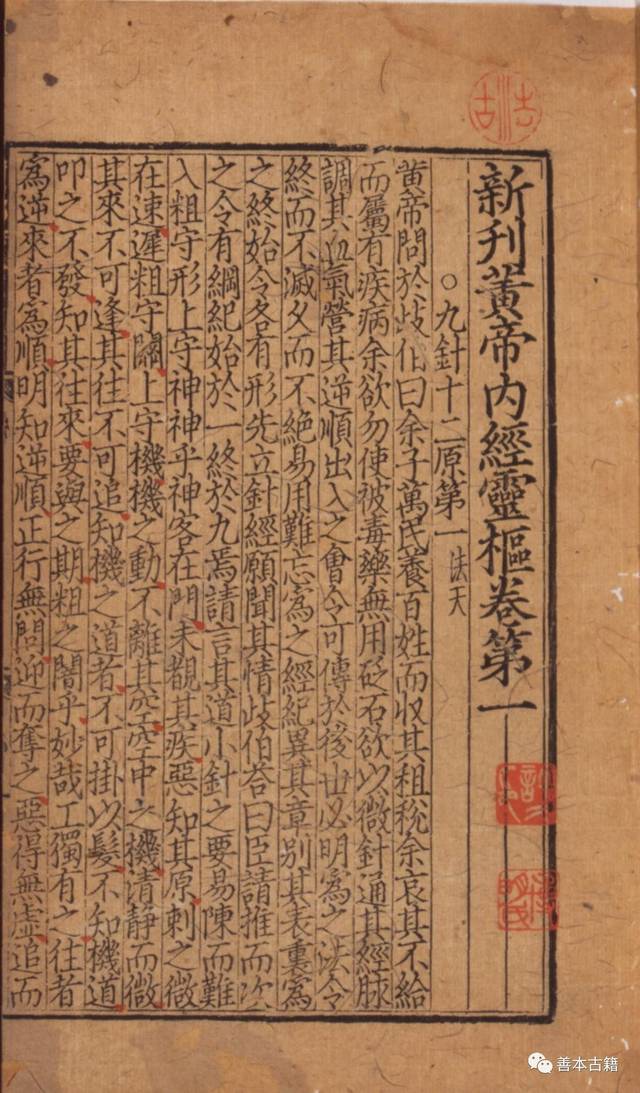 新刊黃帝內經靈樞卷第一
○九針十二原第一 法天
黃帝問於歧伯曰余子萬民養百姓而收其租稅余哀其不給
而屬有疾病余欲勿使被毒藥無用砭石欲以微針通其經脉
調其血氣營其逆順出入之會令可傳於後世必明為之法令
終而不滅久而不絕易用難忘為之經紀異其章別其表裏為
之終始令各有形先立針經願聞其情歧伯荅曰臣請推而次
之令有綱紀始於一終於九焉請言其道小針之要易陳而難
入粗守形上守神神乎神客在門未覩其疾惡知其原刺之微
在速遲粗守關上守機機之動不離其空空中之機清靜而微
其來不可逢其往不可追知機之道者不可掛以髮不知機道
叩之不發知其往來要與之期粗之闇乎妙哉工獨有之往者
為逆來者為順明知逆順正行無問迎而奪之惡得無虛追而
善本古籍